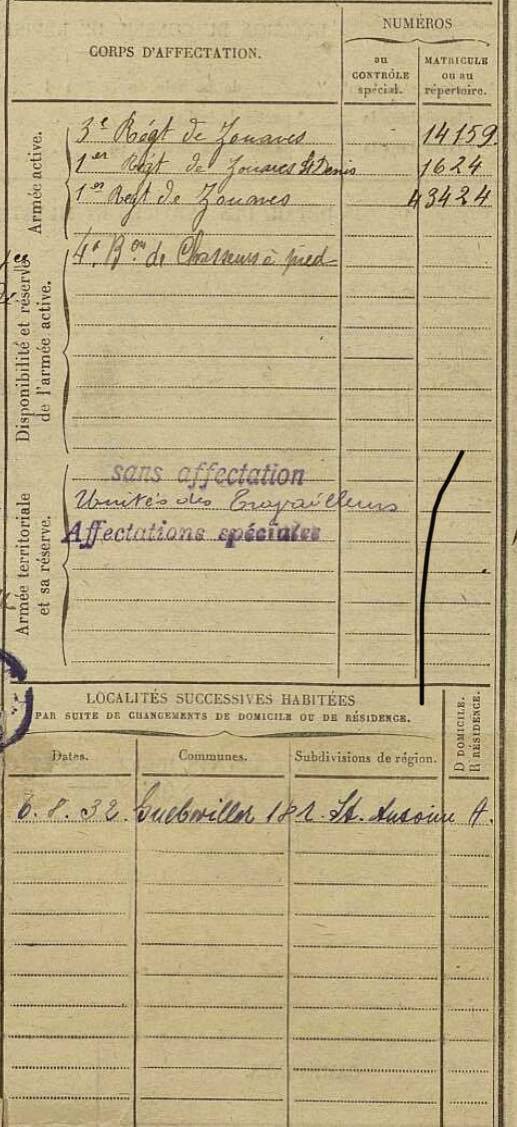 NUMÉROS
CORPS D'AFFECTATION.
au CONTRÔLE spécial.
MATRICULE ou au répertoire.
Armée active.
3e Régt de Zouaves 14159.
1er Régt de Zouaves St Denis 1624
1er Régt de Zouaves 43424
Disponibilité et réserve de l'armée active.
4e Bon de Chasseurs à pied
Armée territoriale et sa réserve.
sans affectation
Unités des Travailleurs
Affectations spéciales
LOCALITÉS SUCCESSIVES HABITÉES
PAR SUITE DE CHANGEMENTS DE DOMICILE OU DE RÉSIDENCE.
D DOMICILE.
R RÉSIDENCE.
Dates.
Communes.
Subdivisions de région.
6.8.32. Guebwiller 18 r. St. Antoine